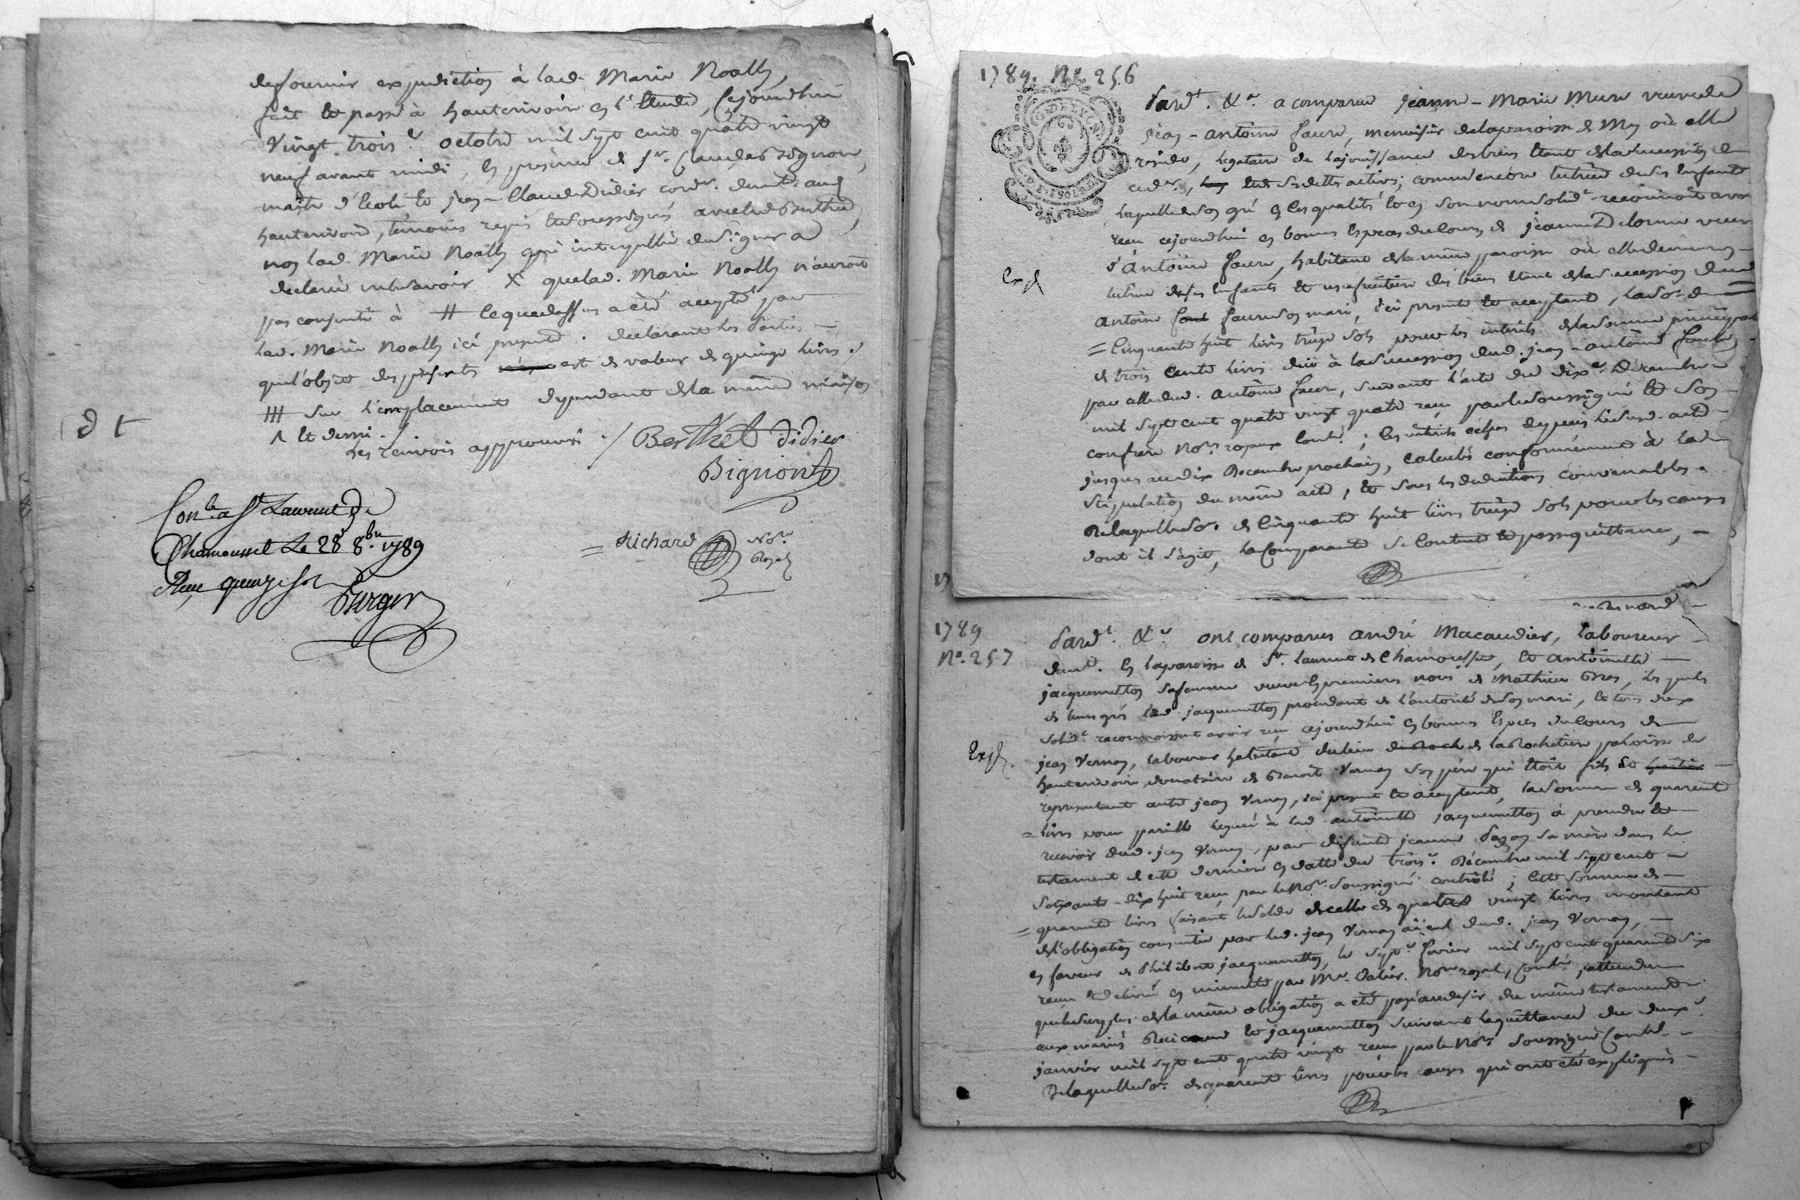 de fournir expedition à lad. Marie Noally,
fait et passé à hauterivoire en l'Etude, Cejourdhui
vingt trois.e octobre mil sept cent quatre vingt
neuf avant midi, en presence de S.r Claude Bignon,
maitre d'école et jean-Claude Didier cord.r dem.t aud.
hauterivoire, témoins requis et soussignés avec led. Berthet,
non lad. Marie Noally qui interpellée de signer a
declaré ne le savoir X que lad. Marie Noally n'auroit
pas consenti à # ce que dessus a été accepté par
lad. Marie Noally ici presente. declarant les parties
que l'objet des presentes est de valeur de quinze livres.
### sur l'emplacement dependant de la même maison
^ et demi.
les renvois approuvés ./ Berthet didier
Bignon
d t
Con.lé a S.t Laurent De
Chamousset Le 28 8.bre 1789
Reçu quinze sols
= Richard No.re
Royal
1789. N.e 256
Pard.t &.a a comparu jeanne-Marie Mure veuve de
jean-antoine faure, menuisier de la paroisse de Mey où elle
reside, legataire de la jouissance des biens etant de la succession de
ced.r, et de ses dettes actives; comme encore tutrice de ses Enfants
laquelle de son gré en les qualités et en son nom solid.t reconnoit avoir
reçu cejourdhui en bonnes Especes du Cours de jeanne veuve
d'Antoine faure, habitante de la même paroisse où elle demeure,
Exp.
tutrice de ses Enfants et usufruitiere des biens etant de la succession dud.
antoine faure son mari, ici presente et acceptant, la so.e de
= Cinquante huit livres treize sols pour les interets de la somme principale
de trois cents livres düe à la succession dud. jean-antoine faure,
par celle dud. antoine faure, suivant l'acte du dix.e Décembre
mil sept cent quatre vingt quatre reçu par le soussigné et son
confrere No.res royaux Contr.é; les interets echus depuis led. acte
jusques au dix Decembre prochain, calculés conformément à la
stipulation du même acte, et sous les deductions convenables.
De laquelle so.e de Cinquante huit livres treize sols pour les causes
dont il s'agit, la Comparante se contente et passe quittance,
1789
N.e 257
Pard.t &.a ont comparu andré Macaudier, laboureur
dem.t en la paroisse de S.t laurent de Chamousset, et antoinette
jacquemetton sa femme veuve en premieres noces de Mathieu Gres, les quels
de leurs gré lad. jacquemetton procedant de l'autorité de son mari, et tous deux
solid.t reconnoissent avoir reçu cejourdhui en bonnes Especes du Cours de
Exp.
jean Vernay, laboureur habitant du lieu de la Rochetiere paroisse de
hauterivoire, donataire de Benoit Vernay son père qui étoit fils et
representant autre jean Vernay, ici present et acceptant, la somme de quarante
= livres pour pareille leguée à lad. antoinette jacquemetton à prendre et
recevoir dud. jean Vernay, par defunte jeanne sa mère dans le
testament de cette derniere en datte du trois.e Décembre mil sept cent
soixante-dix huit reçu par le No.re soussigné contrôlé; Cette somme de
= quarante livres faisant le solde de celle de quatre vingt livres montant
de l'obligation consentie par led. jean Vernay aïeul dud. jean Vernay,
en faveur de Philibert jacquemetton, le sept.e fevrier mil sept cent quarante six
recue et delivrée en minutte par M.e No.re royal, Contr.é, attendu
que le surplus de la même obligation a été payé au desir du même testament
aux mariés et jacquemetton suivant la quittance du deux.e
janvier mil sept cent quatre vingt reçue par le No.re soussigné Contr.é
De laquelle so.e de quarante livres pour les causes qui ont été expliquées